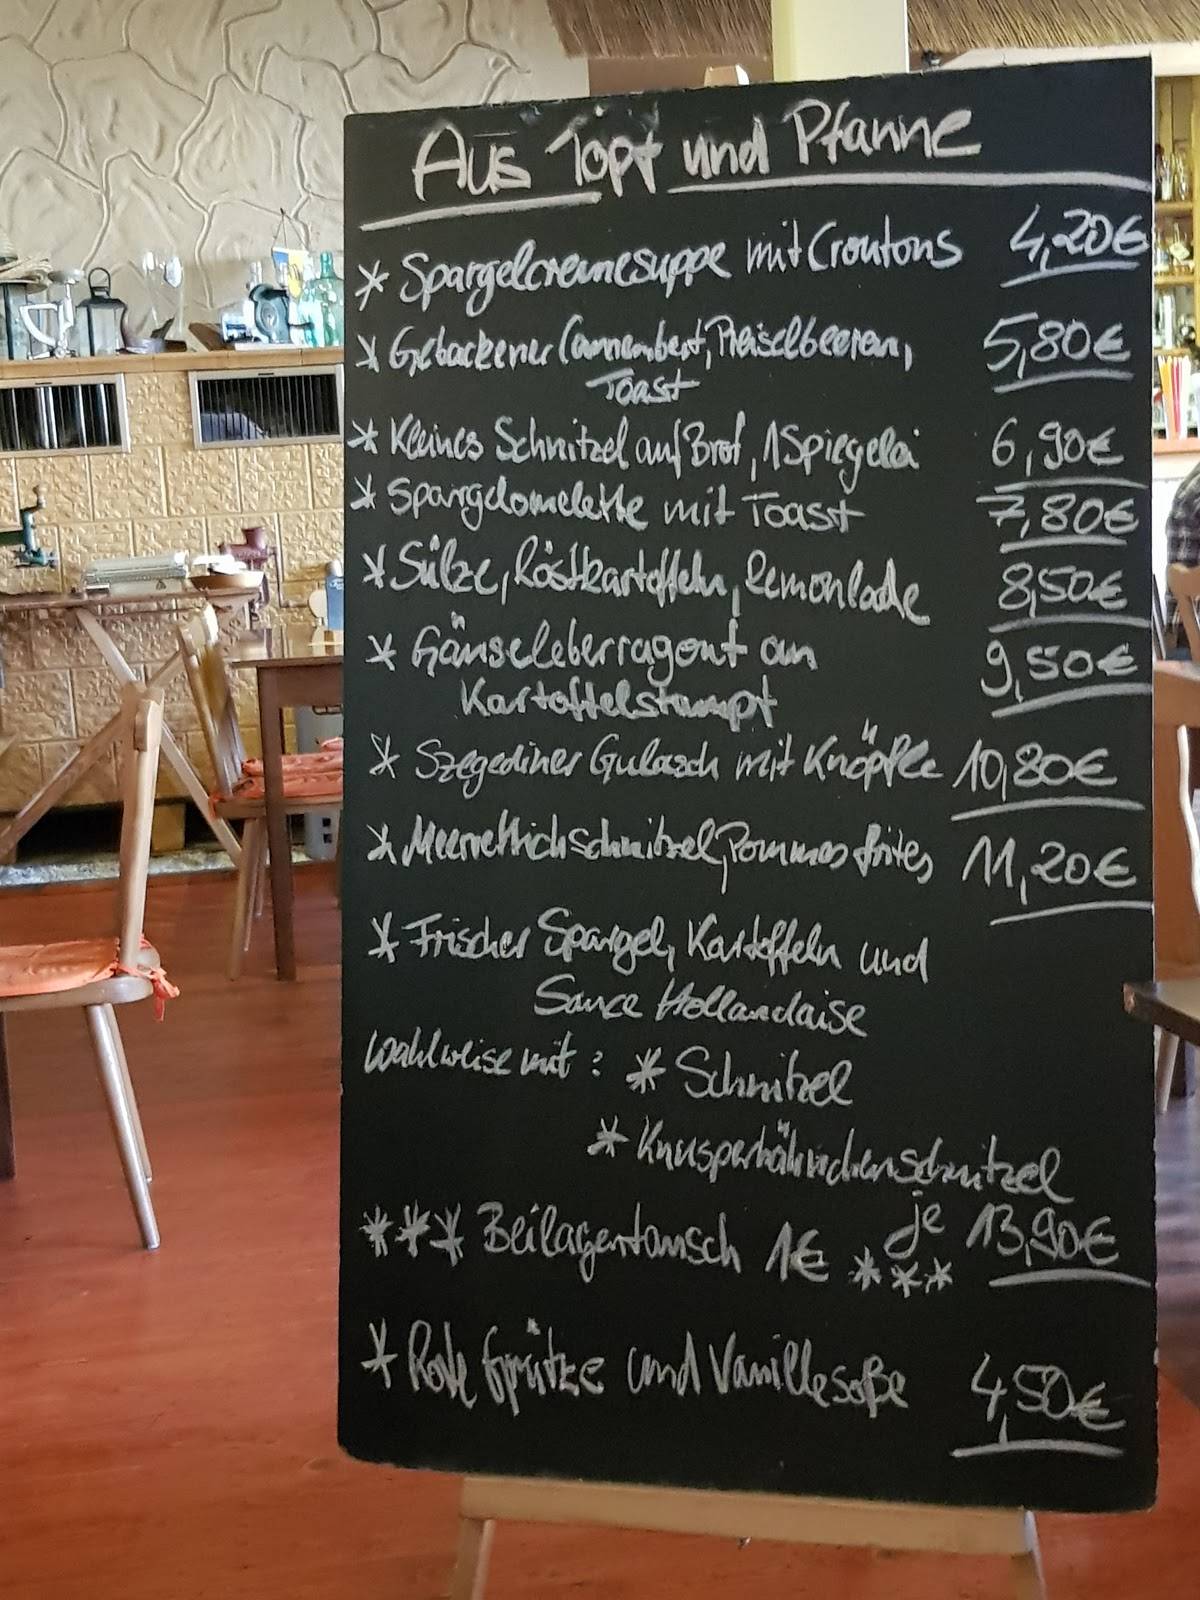 Aus Topf und Pfanne
* Spargelcremesuppe mit Croutons 4,20€
* Gebackener Camembert, Preiselbeeren, 5,80€
Toast
* Kleines Schnitzel auf Brot, 1 Spiegelei 6,90€
* Spargelomelette mit Toast 7,80€
* Sülze, Röstkartoffeln, Remoulade 8,50€
* Gänseleberragout an 9,50€
Kartoffelstampf
* Szegediner Gulasch mit Knöpfle 10,80€
* Meerrettichschnitzel, Pommes frites 11,20€
* Frischer Spargel, Kartoffeln und
Sauce Hollandaise
wahlweise mit: * Schnitzel
* Knusperhähnchenschnitzel
je 13,90€
*** Beilagentausch 1€ ***
* Rote Grütze und Vanillesoße 4,50€